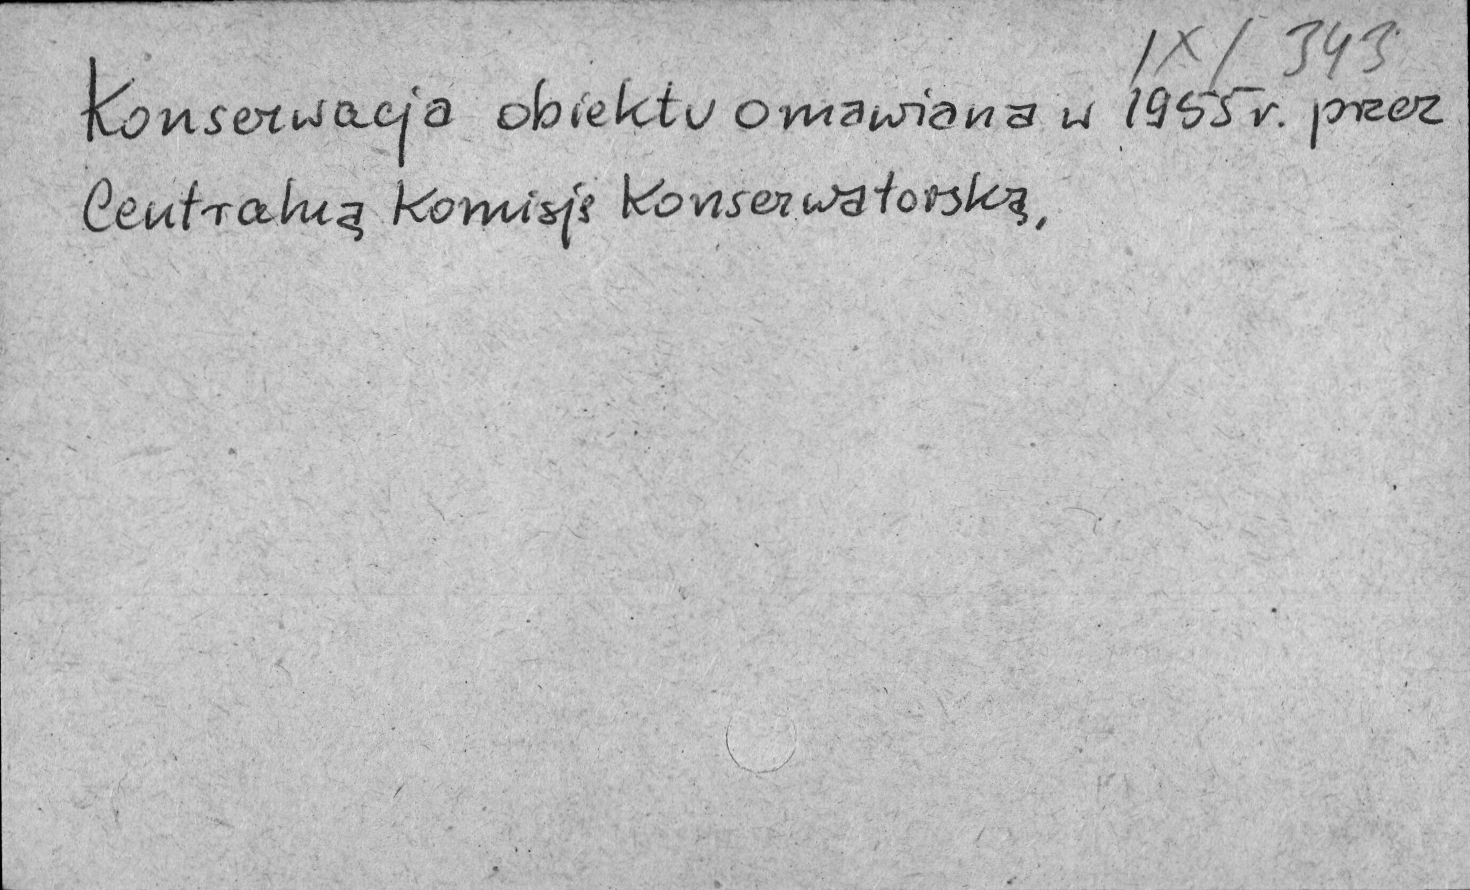 IX/343
Konserwacja obiektu omawiana w 1955 r. przez
Centralną Komisję Konserwatorską,